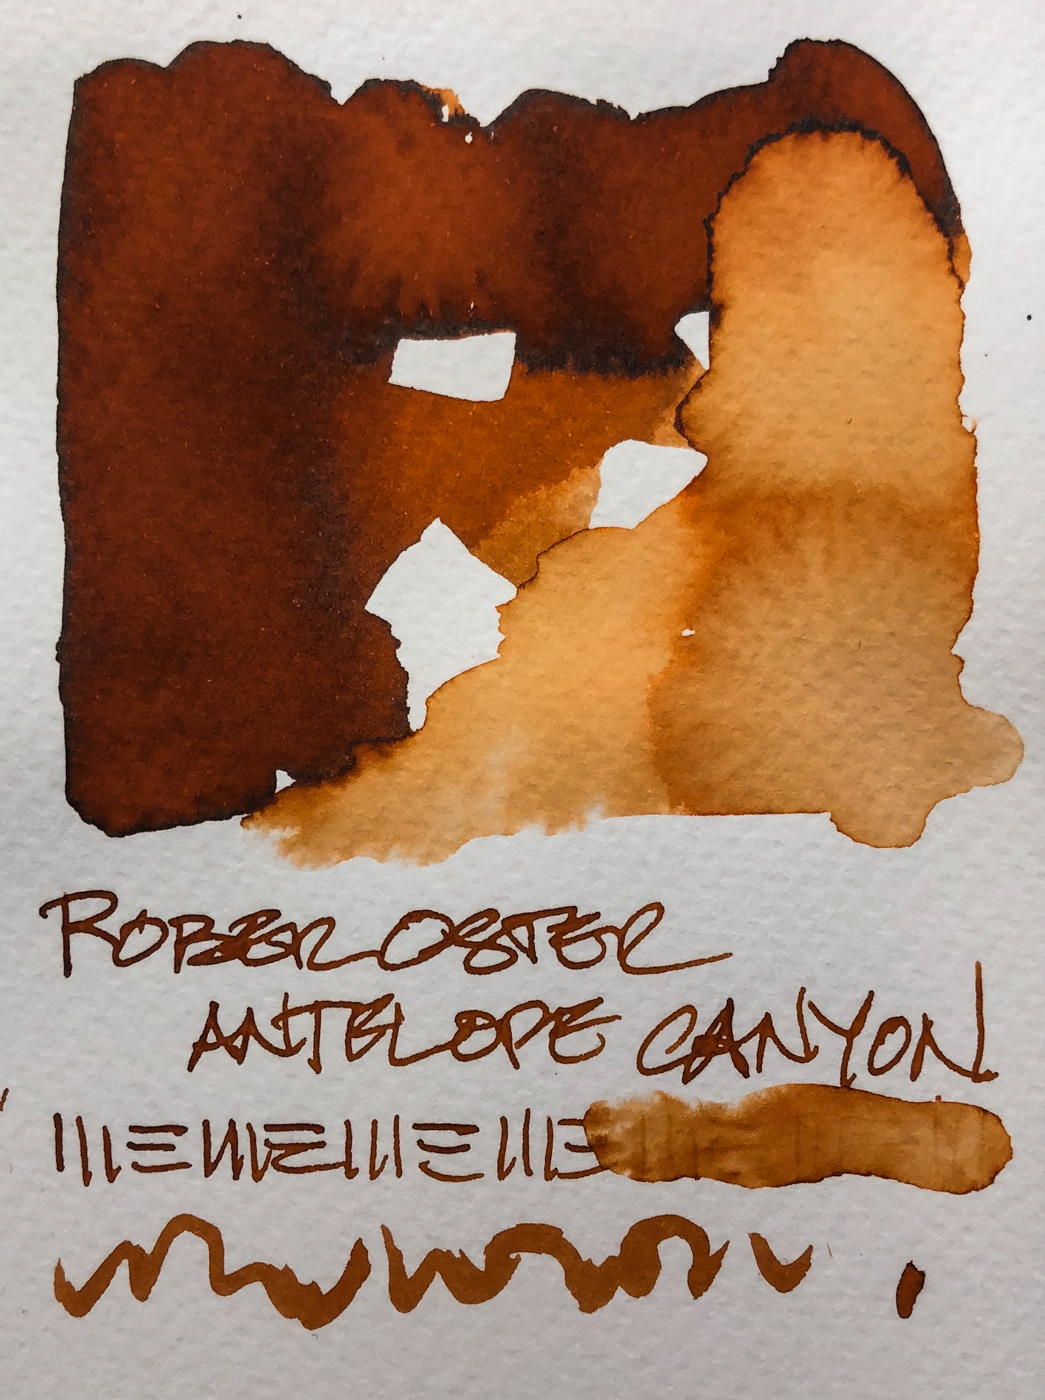 ROBER OSTER
ANTELOPE CANYON